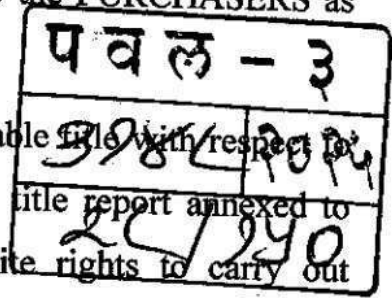 the PURCHASERS as
पवल - ३
able title with respect to
२०२५
title report annexed to
२८/२५०
ite rights to carry out